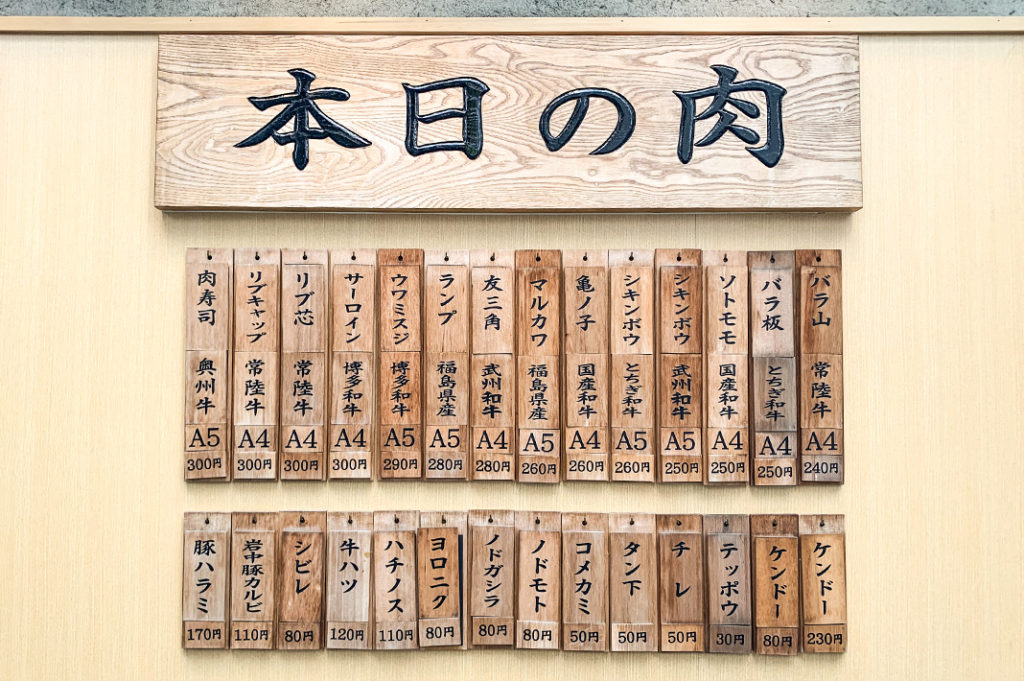 本日の肉
肉寿司 奥州牛 A5 300円
リブキャップ 常陸牛 A4 300円
リブ芯 常陸牛 A4 300円
サーロイン 博多和牛 A4 300円
ウワミスジ 博多和牛 A5 290円
ランプ 福島県産 A5 280円
友三角 武州和牛 A4 280円
マルカワ 福島県産 A5 260円
亀ノ子 国産和牛 A4 260円
シキンボウ とちぎ和牛 A5 260円
シキンボウ 武州和牛 A5 250円
ソトモモ 国産和牛 A4 250円
バラ板 とちぎ和牛 A4 250円
バラ山 常陸牛 A4 240円
豚ハラミ 170円
岩中豚カルビ 110円
シビレ 80円
牛ハツ 120円
ハチノス 110円
ヨロニク 80円
ノドガシラ 80円
ノドモト 80円
コメカミ 50円
タン下 50円
チレ 50円
テッポウ 30円
ケンドー 80円
ケンドー 230円